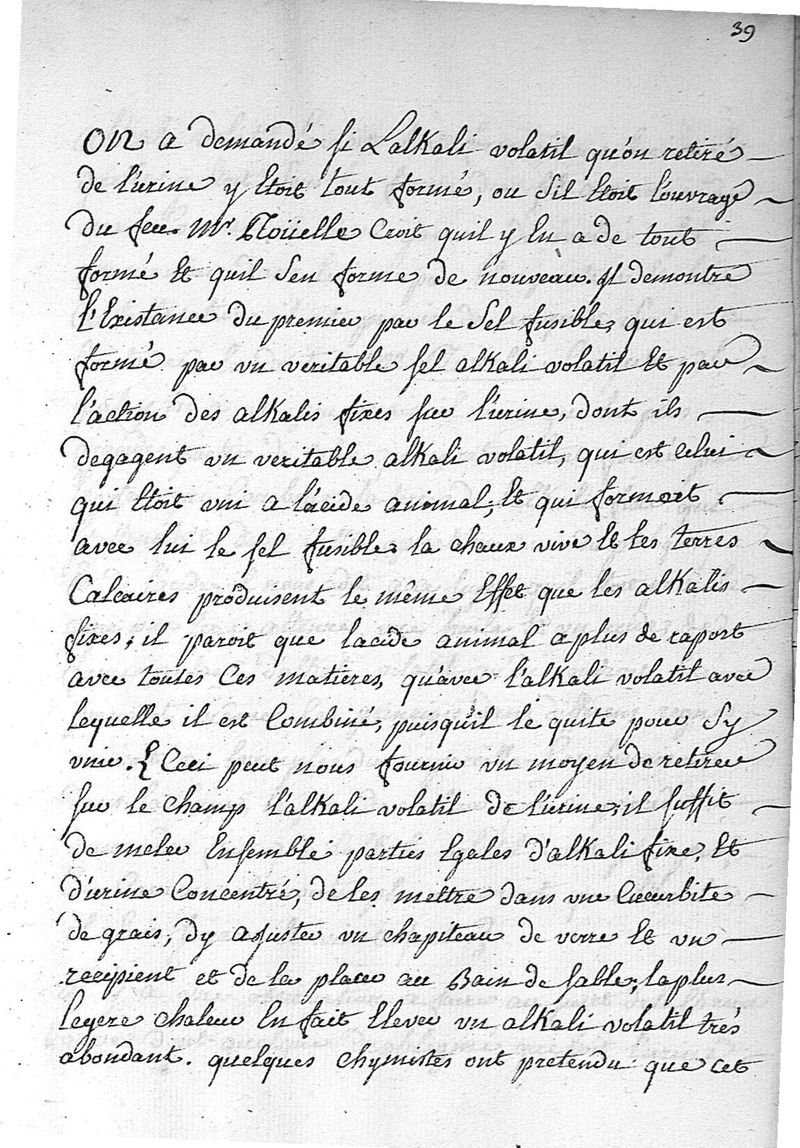 39
On a demandé si Lalkali volatil qu'on retiré
de l'urine y Etoit tout formé, ou s'il Etoit l'ouvrage
du feu. Mr. Roüelle Croit quil y En a de tout
formé Et quil s'en forme de nouveau. Il demontre
l'Existance du premier par le Sel fusible, qui est
formé par un veritable sel alkali volatil Et par
l'action des alkalis fixes sur l'urine, dont ils
degagent un veritable alkali volatil, qui est celui
qui Etoit uni a l'acide animal, Et qui formoit
avec lui le sel fusible. la chaux vive Et les terres
Calcaires produisent le même Effet que les alkalis
fixes; il paroit que lacide animal a plus de raport
avec toutes Ces matieres, qu'avec l'alkali volatil avec
lequelle il est Combiné, puisqu'il le quite pour s'y
unir. Ceci peut nous fournir un moyen de retirer
sur le champ l'alkali volatil de l'urine; il suffit
de meler Ensemble parties Egales d'alkali fixe, Et
d'urine Concentré, de les mettre dans une Cucurbite
de grais, d'y ajuster un chapiteau de verre Et un
recipient et de la placer au Bain de sable, la plus
legere chaleur En fait Elever un alkali volatil très
abondant. quelques chymistes ont pretendu que cet